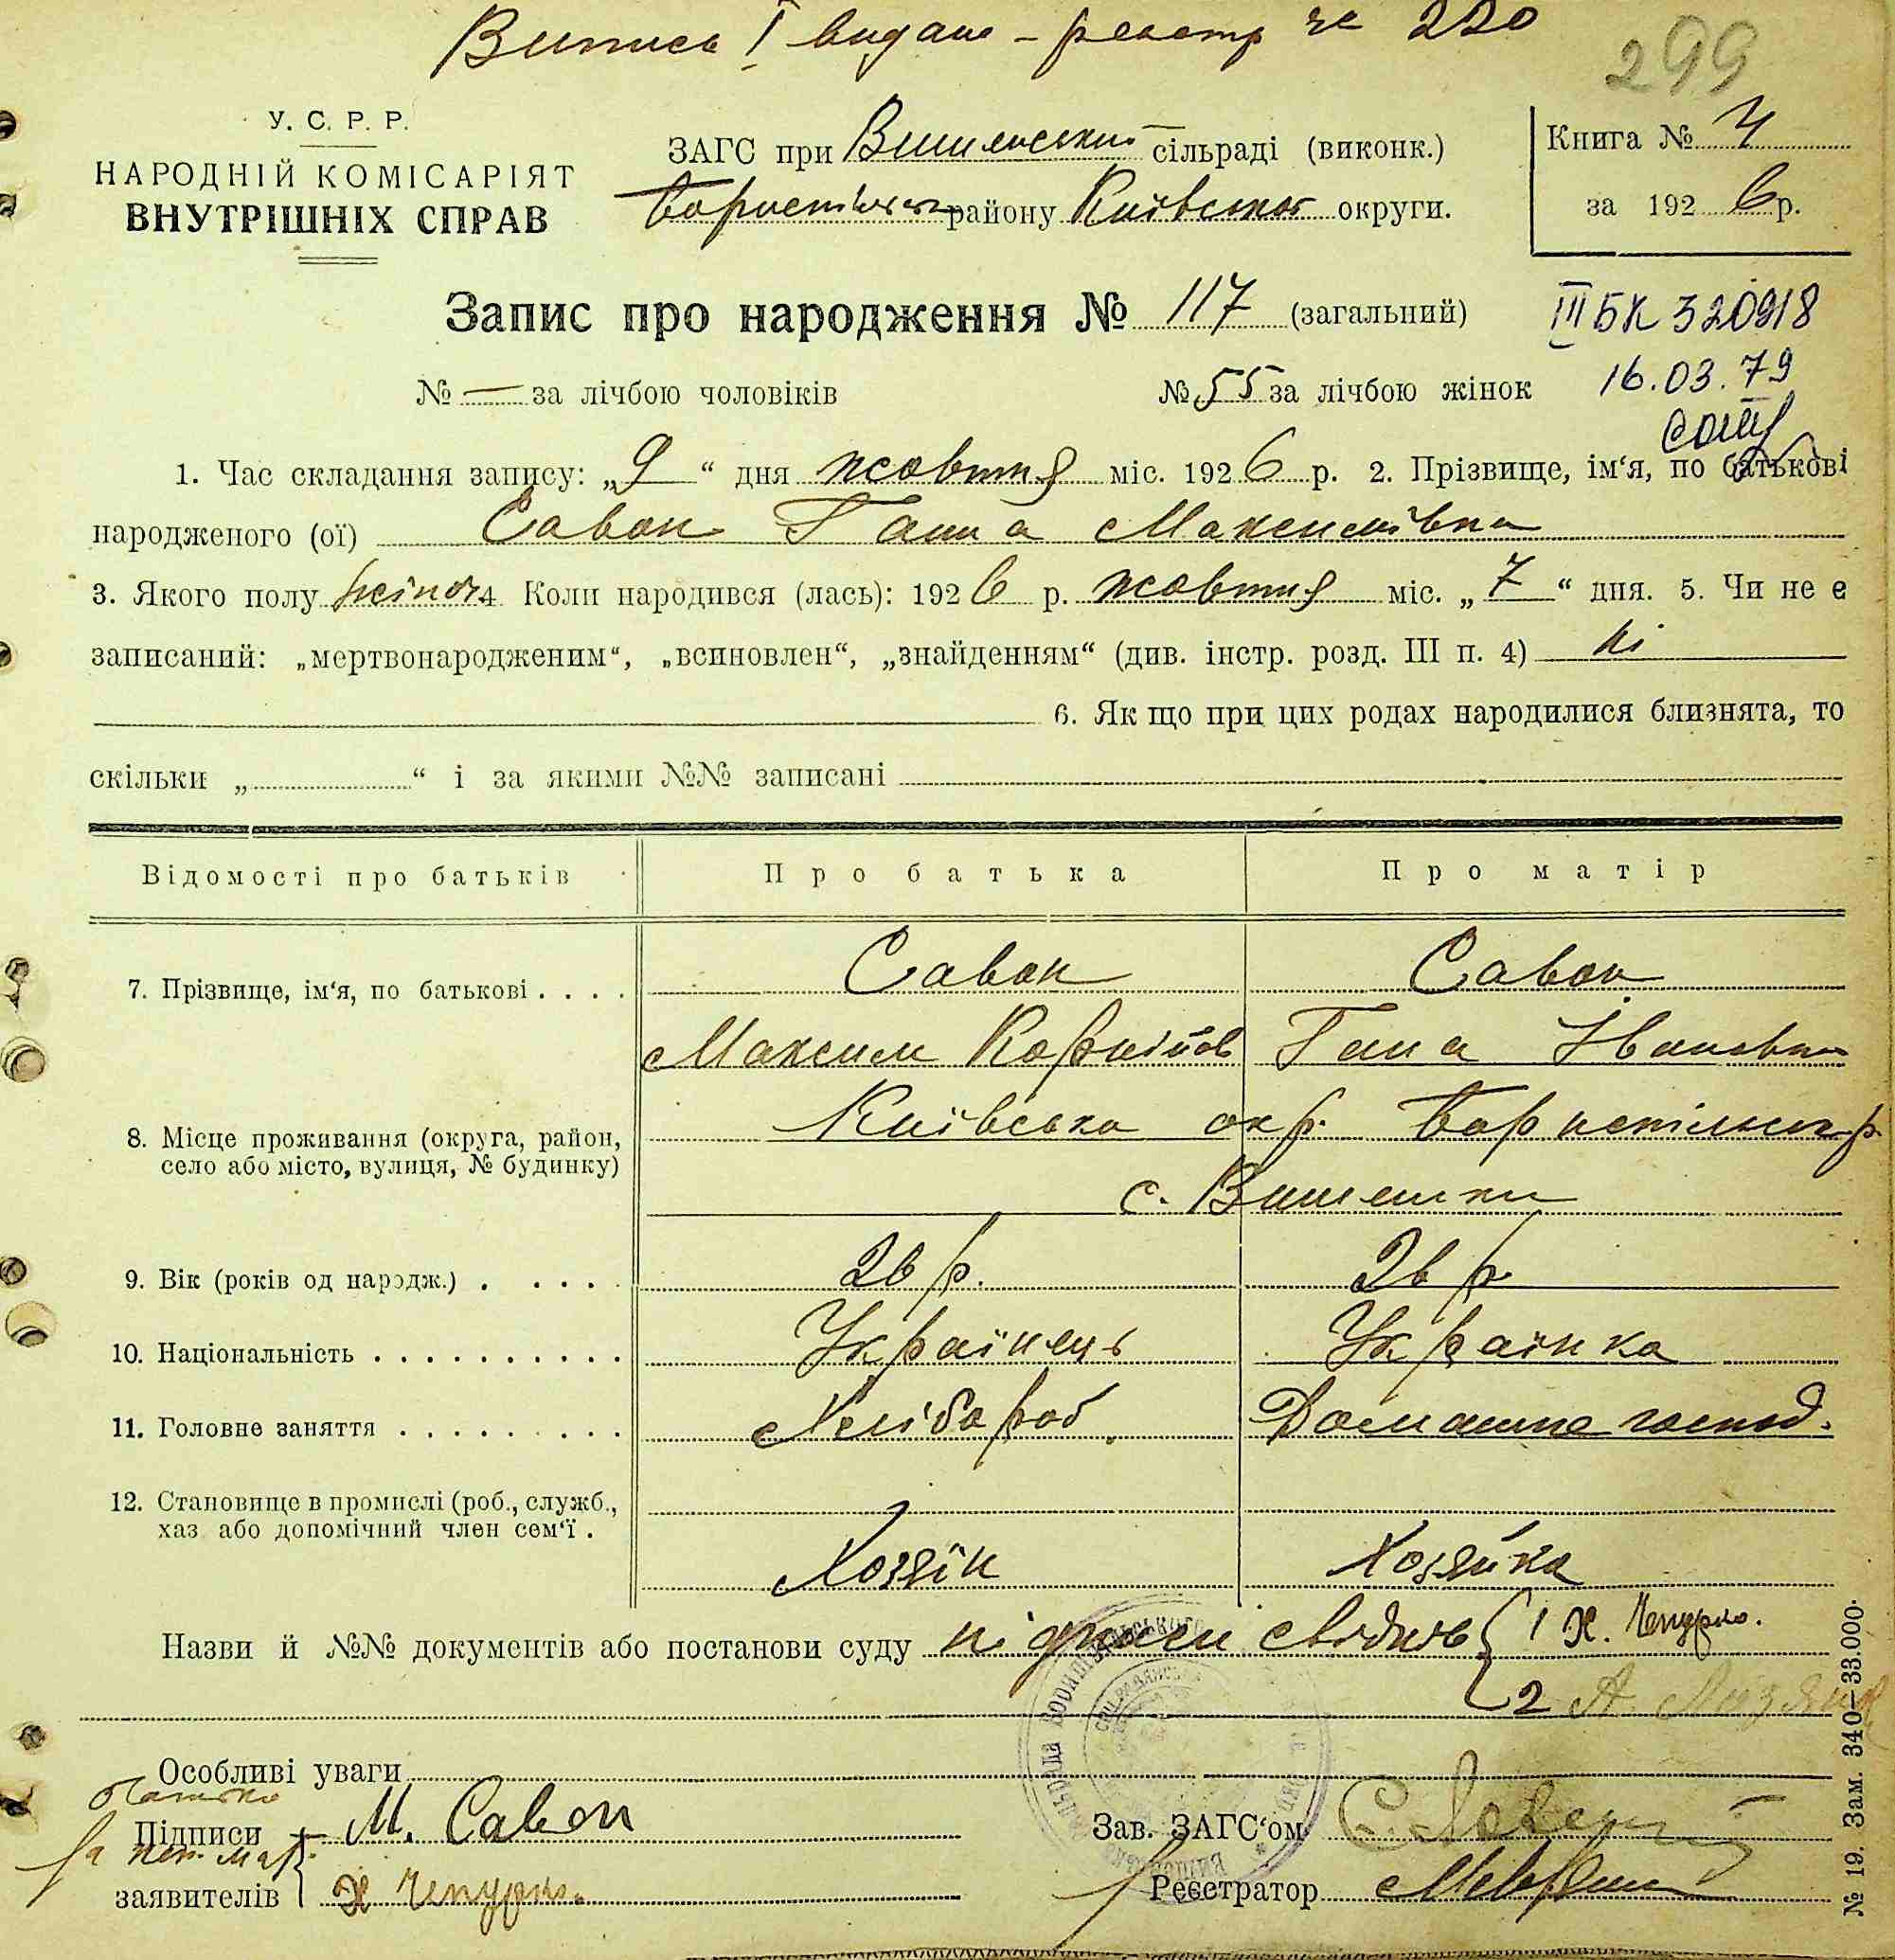 Випись І видано - реєстр № 220
299
У. С. Р. Р.
НАРОДНІЙ КОМІСАРІЯТ
ВНУТРІШНІХ СПРАВ
ЗАГС при Вишенський сільраді (виконк.)
району Київської округи.
Книга №
за 1926 р.
Запис про народження № 117 (загальний)
ІІІ БК 320918
№ — за лічбою чоловіків
№ 55 за лічбою жінок
16.03.79
1. Час складання запису: „9“ дня жовтня міс. 1926 р. 2. Прізвище, ім‘я, по батькові
народженого (ої) Савон Ганна Максимівна
3. Якого полу жіноч 4. Коли народився (лась): 1926 р. жовтня міс. „7“ дня. 5. Чи не є
записаний: „мертвонародженим“, „всиновлен“, „знайденням“ (див. інстр. розд. III п. 4) ні
6. Як що при цих родах народилися близнята, то
скільки „ “ і за якими №№ записані
Відомості про батьків
Про батька
Про матір
7. Прізвище, ім‘я, по батькові . . . .
Савон
Савон
Максим Корнійов
Гана Івановна
8. Місце проживання (округа, район,
село або місто, вулиця, № будинку)
Київська окр. Бориспільськ р.
с. Вишеньки
9. Вік (років од народж.) . . . . .
26 р.
26 р.
10. Національність . . . . . . . . . . .
Українець
Українка
11. Головне заняття . . . . . . . . . .
Хлібороб.
Домашнє господ.
12. Становище в промислі (роб., служб.,
хаз або допомічний член сем‘ї .
Хозяїн
Хозяйка
Назви й №№ документів або постанови суду підписи свідків { 1 Х. Чепурко.
2 А.
Особливі уваги
батько
Підписи М. Савон
Зав. ЗАГС‘ом
заявителів Х Чепурко.
Реєстратор
№ 19. Зам. 340—33.000.